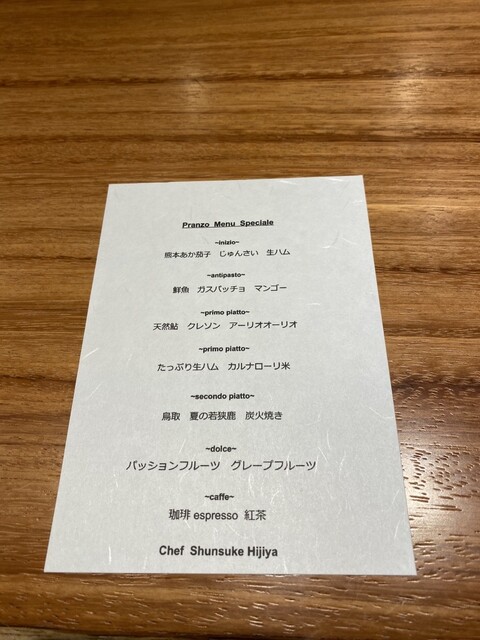 Pranzo Menu Speciale
~inizio~
熊本あか茄子 じゅんさい 生ハム
~antipasto~
鮮魚 ガスパッチョ マンゴー
~primo piatto~
天然鮎 クレソン アーリオオーリオ
~primo piatto~
たっぷり生ハム カルナローリ米
~secondo piatto~
鳥取 夏の若狭鹿 炭火焼き
~dolce~
パッションフルーツ グレープフルーツ
~caffe~
珈琲 espresso 紅茶
Chef Shunsuke Hijiya